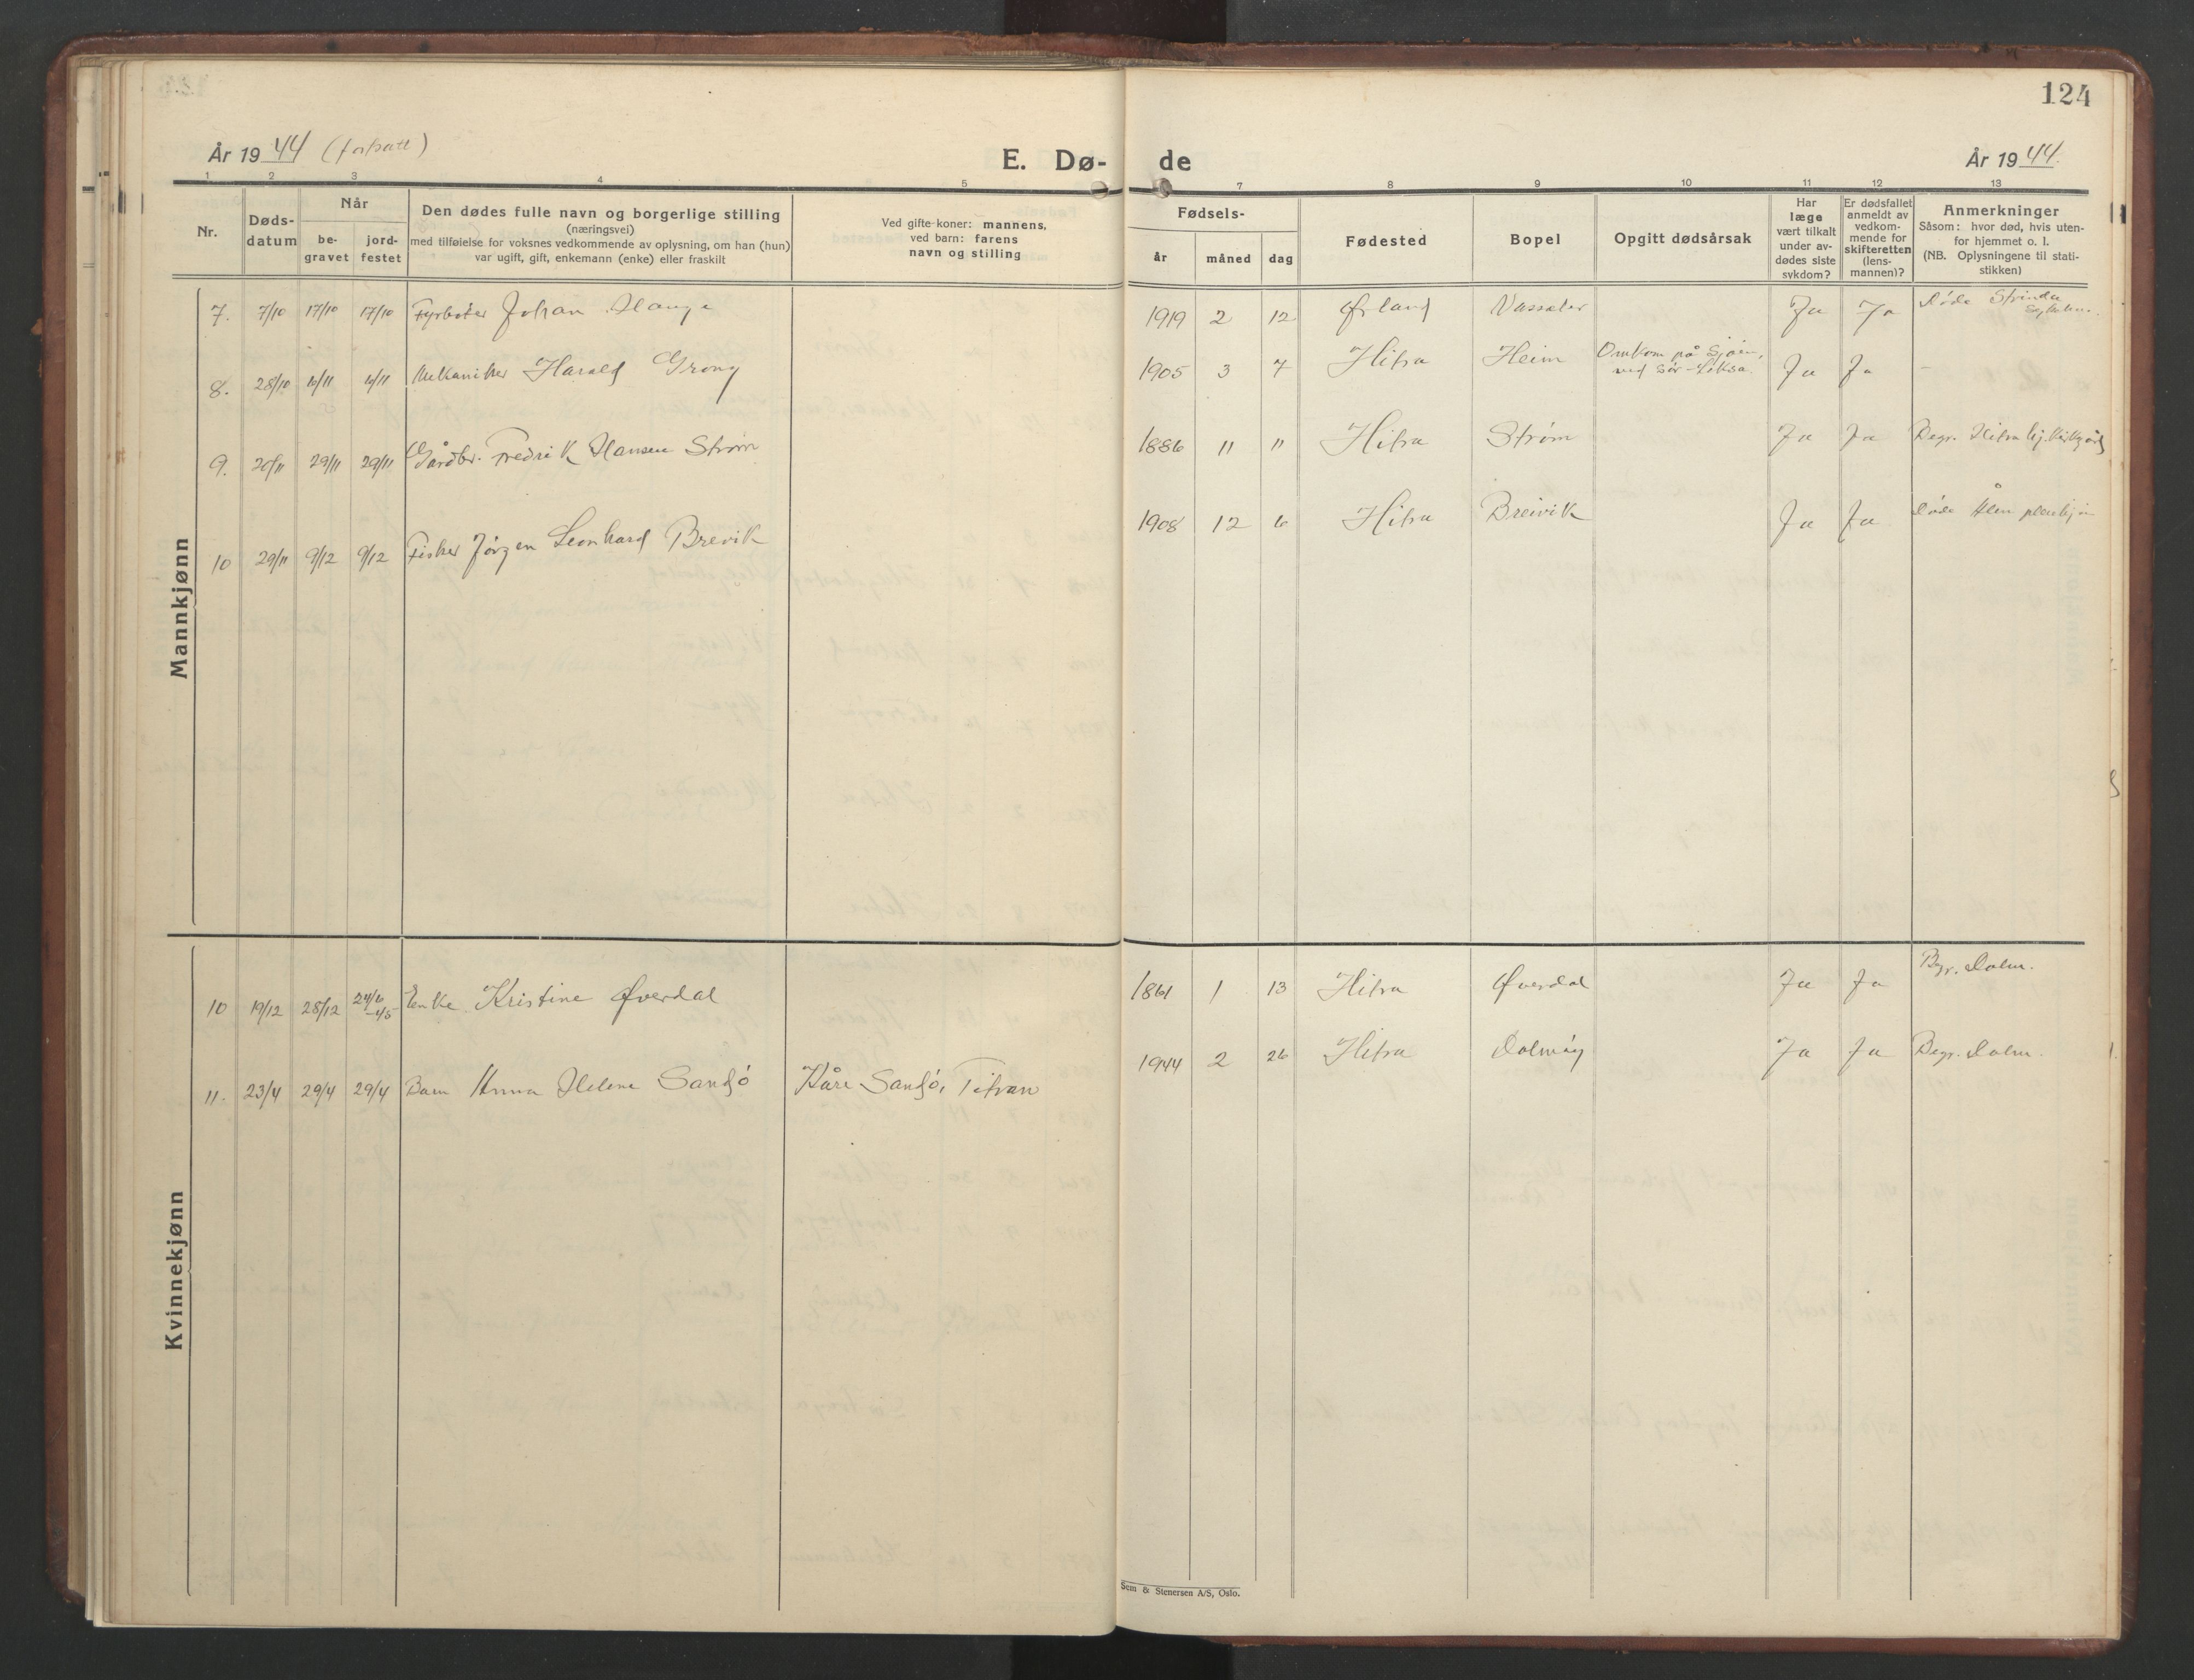 124
År 1944 (forsatt)
E. Dø- de
År 1944.
1 2 3 4 5 7 8 9 10 11 12 13
Nr.
Døds-
datum
Når
be-
gravet
jord-
festet
Den dødes fulle navn og borgerlige stilling
(næringsvei)
med tilføielse for voksnes vedkommende av oplysning, om han (hun)
var ugift, gift, enkemann (enke) eller fraskilt
Ved gifte koner: mannens,
ved barn: farens
navn og stilling
Fødsels-
år måned dag
Fødested
Bopel
Opgitt dødsårsak
Har
læge
vært tilkalt
under av-
dødes siste
sykdom?
Er dødsfallet
anmeldt av
vedkom-
mende for
skifteretten
(lens-
mannen)?
Anmerkninger
Såsom: hvor død, hvis uten-
for hjemmet o. l.
(NB. Oplysningene til stati-
stikken)
Mannkjønn
7. 7/10 17/10 17/10 Fyrbøter Johan Hauge 1919 2 12 Ørland Ja Ja Døde Strinda
8. 28/10 4/11 4/11 Mekaniker Harald Grong 1905 3 7 Hitra Heim Omkom på Sjøen, ved Sør- Ja Ja -
9. 20/11 29/11 29/11 Gårdbr. Fredrik Hansen Strøm 1886 11 11 Hitra Strøm Ja Ja Begr. Hitra
10 29/11 9/12 9/12 Fisker Jørgen Leonhard Brevik 1908 12 6 Hitra Breivik Ja Ja Døde Ålen pleiehj
Kvinnekjønn
10 19/12 28/12 24/6 -45 Enke Kristine Øverdal 1861 1 13 Hitra Øverdal Ja Ja Begr. Dolm.
11. 23/4 29/4 29/4 Barn Anna Helene Sandø Kåre Sandø, Titran 1944 2 26 Hitra Dolmøy Ja Ja Begr. Dolm.
Sem & Stenersen A/S, Oslo.